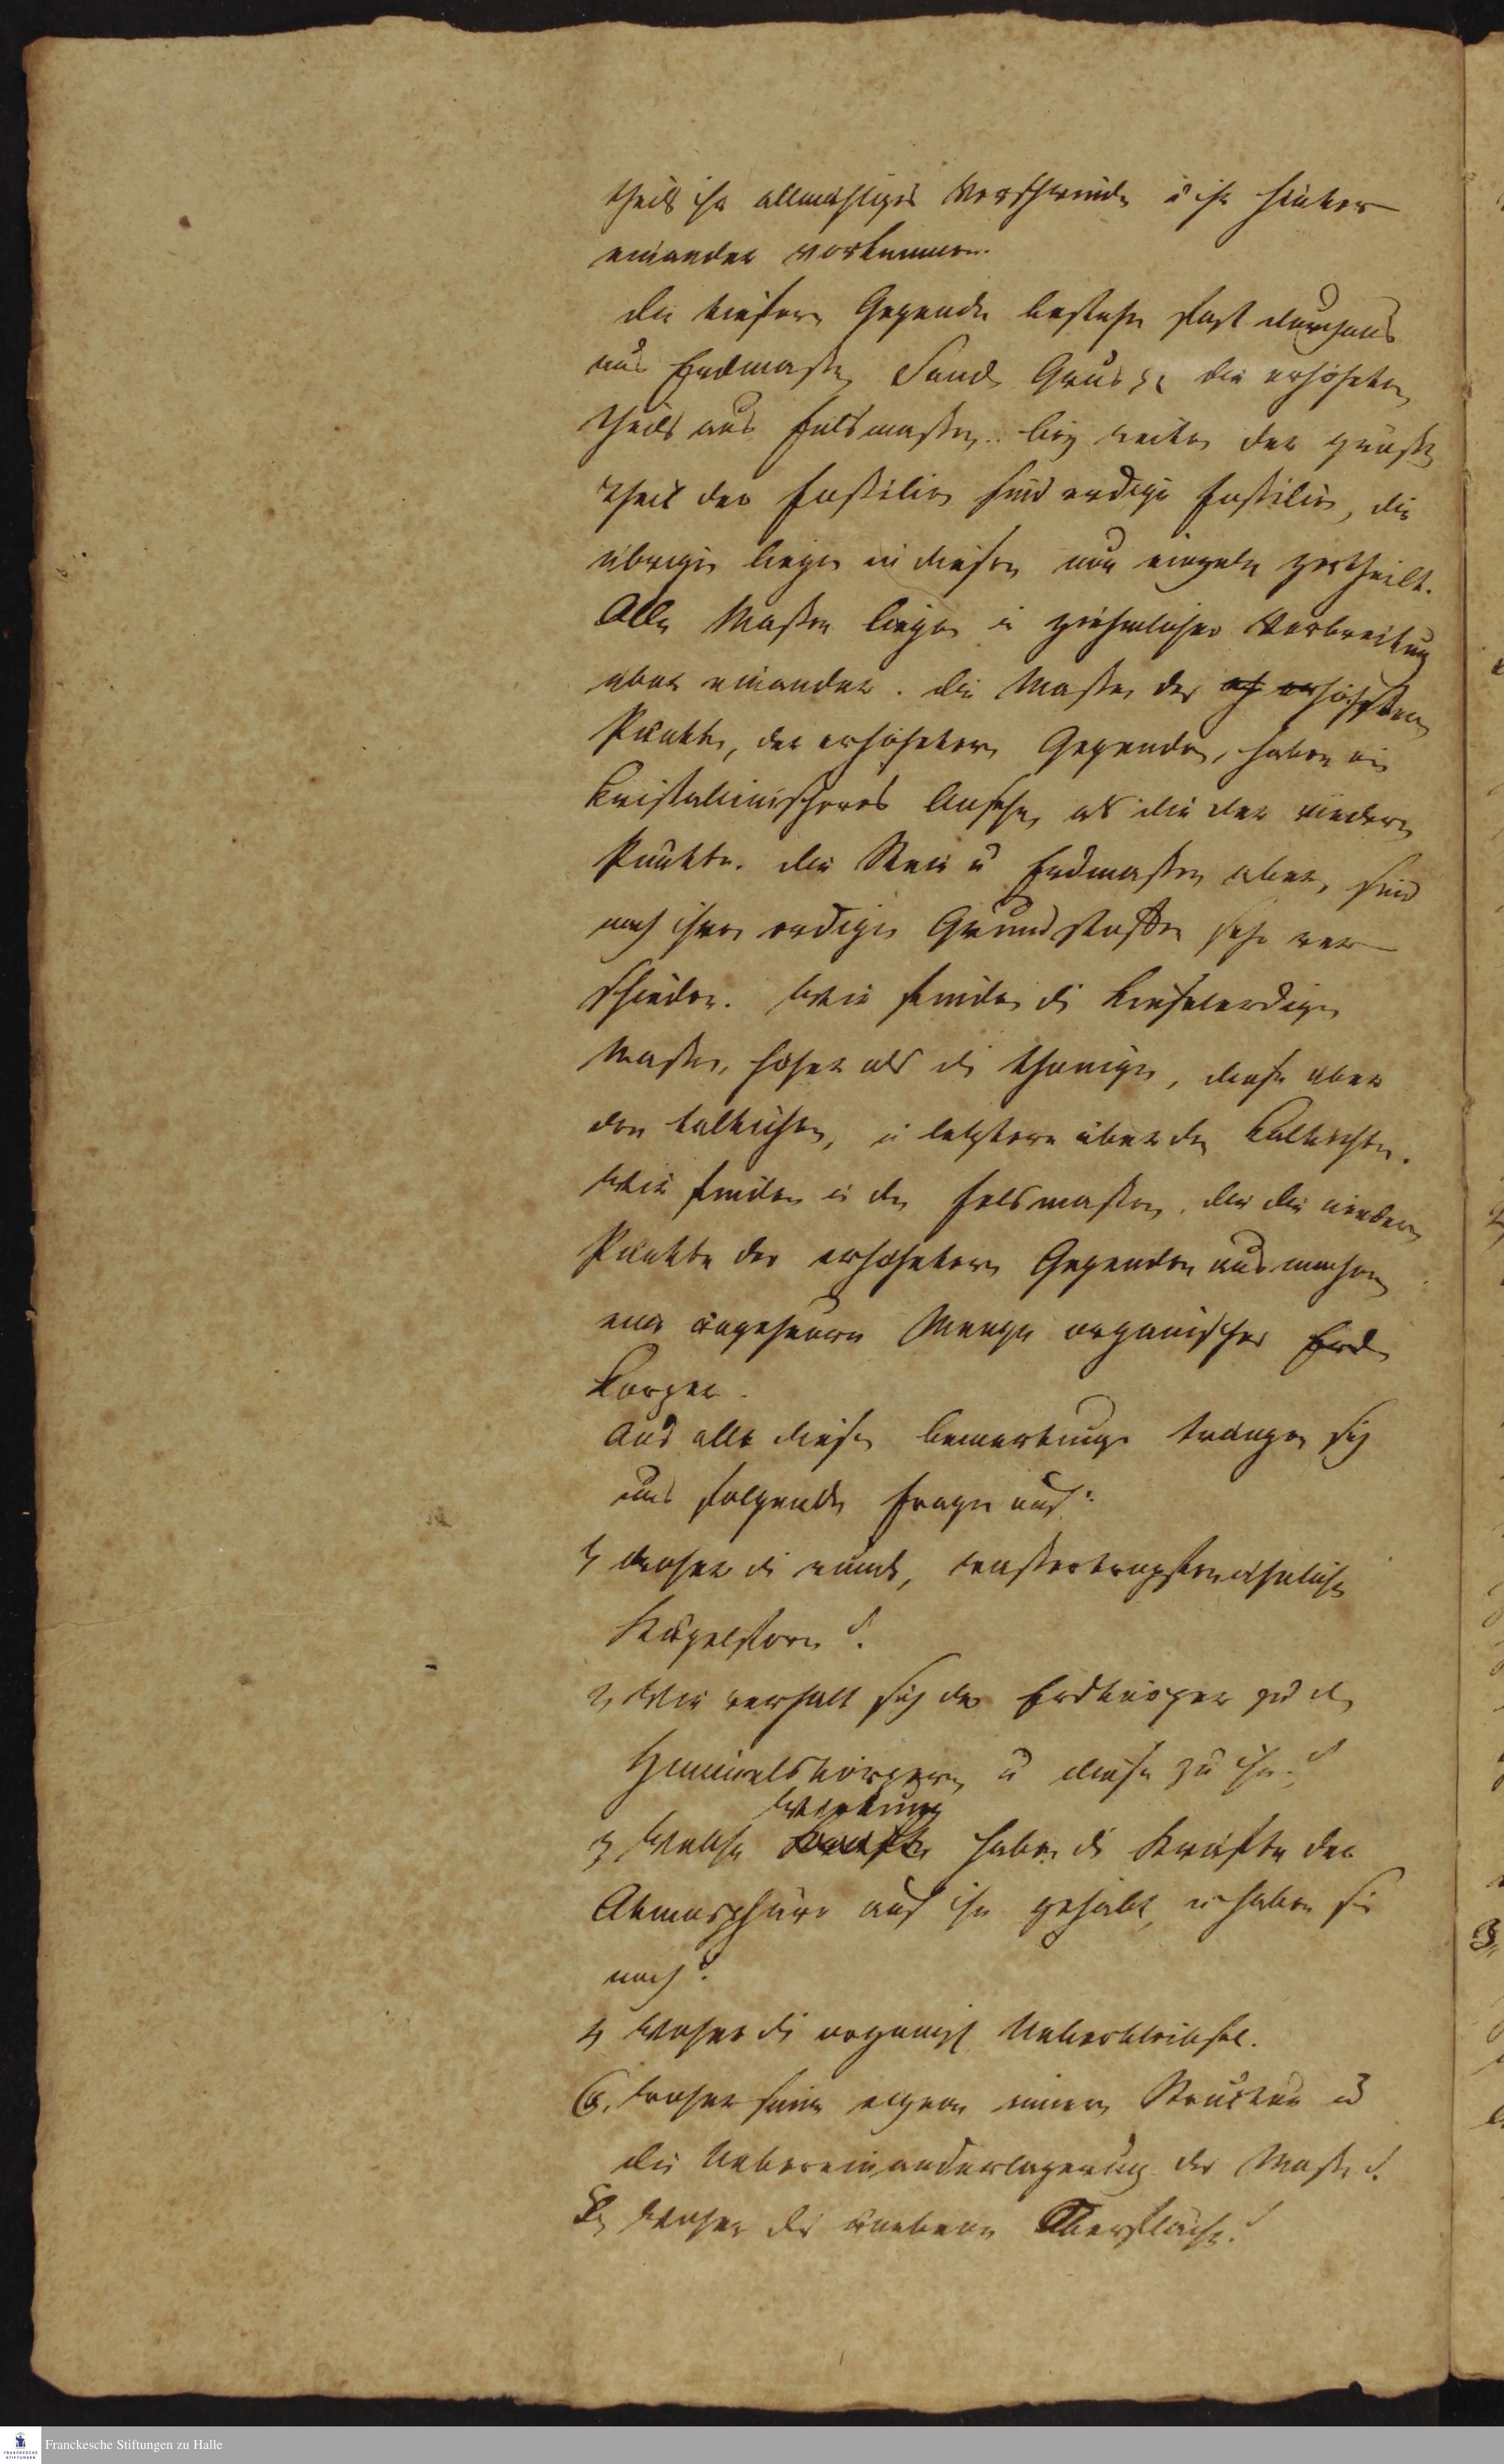 theils ihr allmähliges Verschwinden u ihr hinter
einander vorkommen.
Die tiefern Gegenden bestehn fast durchaus
aus Erdmassen Sand, Grus die erhöheten
theils aus Felsmassen. bey weiten der größte
Theil der Fossilien sind erdige Fossilien, die
übrigen liegen in diesen nur einzeln zertheilt.
Alle Massen liegen in ziehmlicher Verbreitung
über einander. die Massen der erhöhtern
Punkte, der erhöhetern Gegenden, haben ein
kristallinischeres Ansehn, als die der niedern
Punkte. die Stein u Erdmassen aber, sind
nach ihren erdigen Grundstoffen sehr ver
schieden. Wir finden die kieselerdigen
Massen, höher als die thonigen, diese über
den talkichten, u letztere über den kalkichten.
Wir finden in den Felsmassen, die die niedern
Punkte der erhöhetern Gegenden ausmachen
eine ungeheure Menge organischer Erd
körper.
Aus alle diesen Bemerkungen drängen sich
uns folgende Fragen auf:
1, Woher die runde, wassertropfenähnliche
Kugelform?
2, Wie verhält sich der Erdkörper zu den
Himmelskörpern u diese zu ihm?
Wirkung
3, Welche Kräfte haben die Kräfte der
Atmosphäre auf ihn gehabt, u haben sie
noch?
4, Woher die organisch Ueberbleibsel.
6, Woher seine eigene innere Structur u
die Uebereinanderlagerung der Massen?
5, Woher die unebene Oberfläche?
Franckesche Stiftungen zu Halle